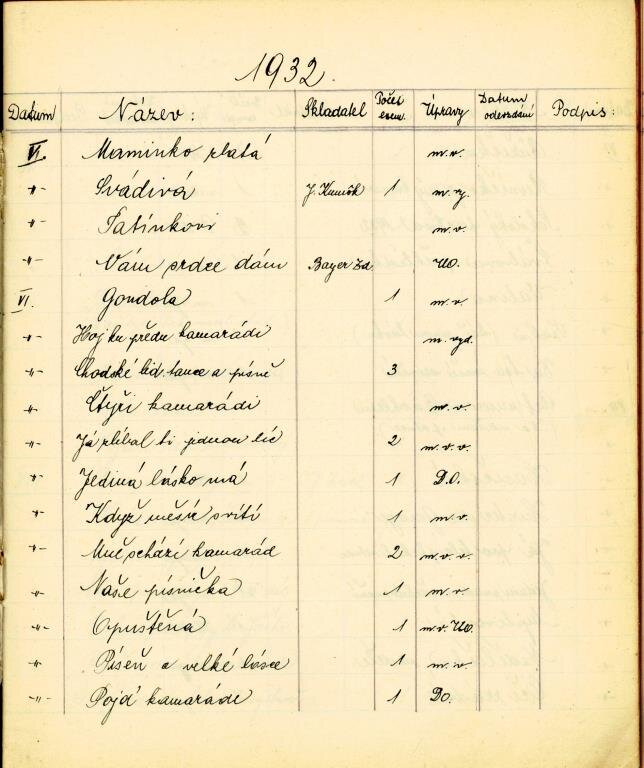 1932.
Datum Název: Skladatel Počet exem. Úpravy Datum odevzdání Podpis:
VI. Maminko zlatá m.v.
-"- Svádivá 1 m.vy.
-"- Tatínkovi m.v.
-"- Vám srdce dám Bayer Zd. UO.
VI. Gondola 1 m.v.
-"- Hoj ku předu kamarádi m.vyd.
-"- Chodské lid. tance a písně 3
-"- Čtyři kamarádi m.v.
-"- Já zlíbal ti jednou líc 2 m.v.v.
-"- Jediná lásko má 1 D.O.
-"- Když měsíc svítí 1 m.v.
-"- Mně schází kamarád 2 m.v.v.
-"- Naše písnička 1 m.v.
-"- Opuštěná 1 m.v. UO.
-"- Píseň o velké lásce 1 m.v.
-"- Pojď kamaráde 1 DO.